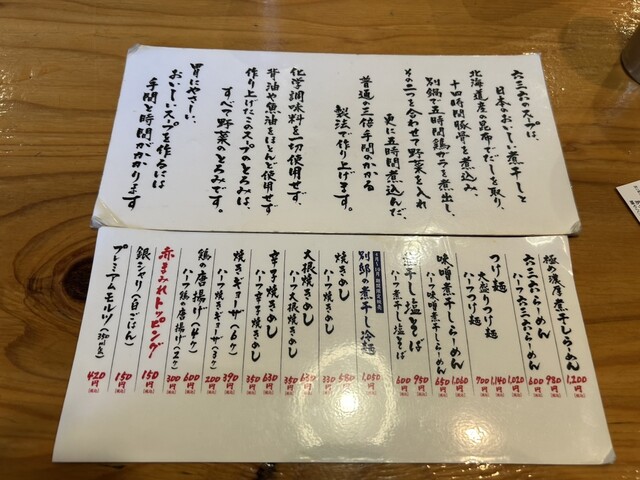 六三六のスープは、
日本のおいしい煮干しと
北海道産の昆布でだしを取り、
十四時間豚骨を煮込み、
別鍋で五時間鶏ガラを煮出し、
その二つを合わせて野菜を入れ
更に五時間煮込んだ、
普通の三倍手間のかかる
製法で作り上げてます。
化学調味料を一切使用せず、
背油や魚油をほとんど使用せず
作り上げたこのスープのとろみは、
すべて野菜のとろみです。
胃にやさしい、
おいしいスープを作るには
手間と時間がかかります
極め濃厚煮干しらーめん 1,200円
六三六らーめん 980円
ハーフ六三六らーめん 600円
つけ麺 1,020円
大盛りつけ麺 1,140円
ハーフつけ麺 700円
味噌煮干しらーめん 1,060円
ハーフ味噌煮干しらーめん 650円
煮干し塩そば 950円
ハーフ煮干し塩そば 600円
別邸の煮干し冷麺 1,050円
焼きめし 580円
ハーフ焼きめし 330円
大根焼きめし 630円
ハーフ大根焼きめし 350円
辛子焼きめし 630円
ハーフ辛子焼きめし 350円
焼きギョーザ(6ヶ) 390円
ハーフ焼きギョーザ(3ヶ) 200円
鶏の唐揚げ(4ヶ) 600円
ハーフ鶏の唐揚げ(2ヶ) 300円
赤まみれトッピング 150円
銀シャリ(白ごはん) 150円
プレミアムモルツ(350ml缶) 420円